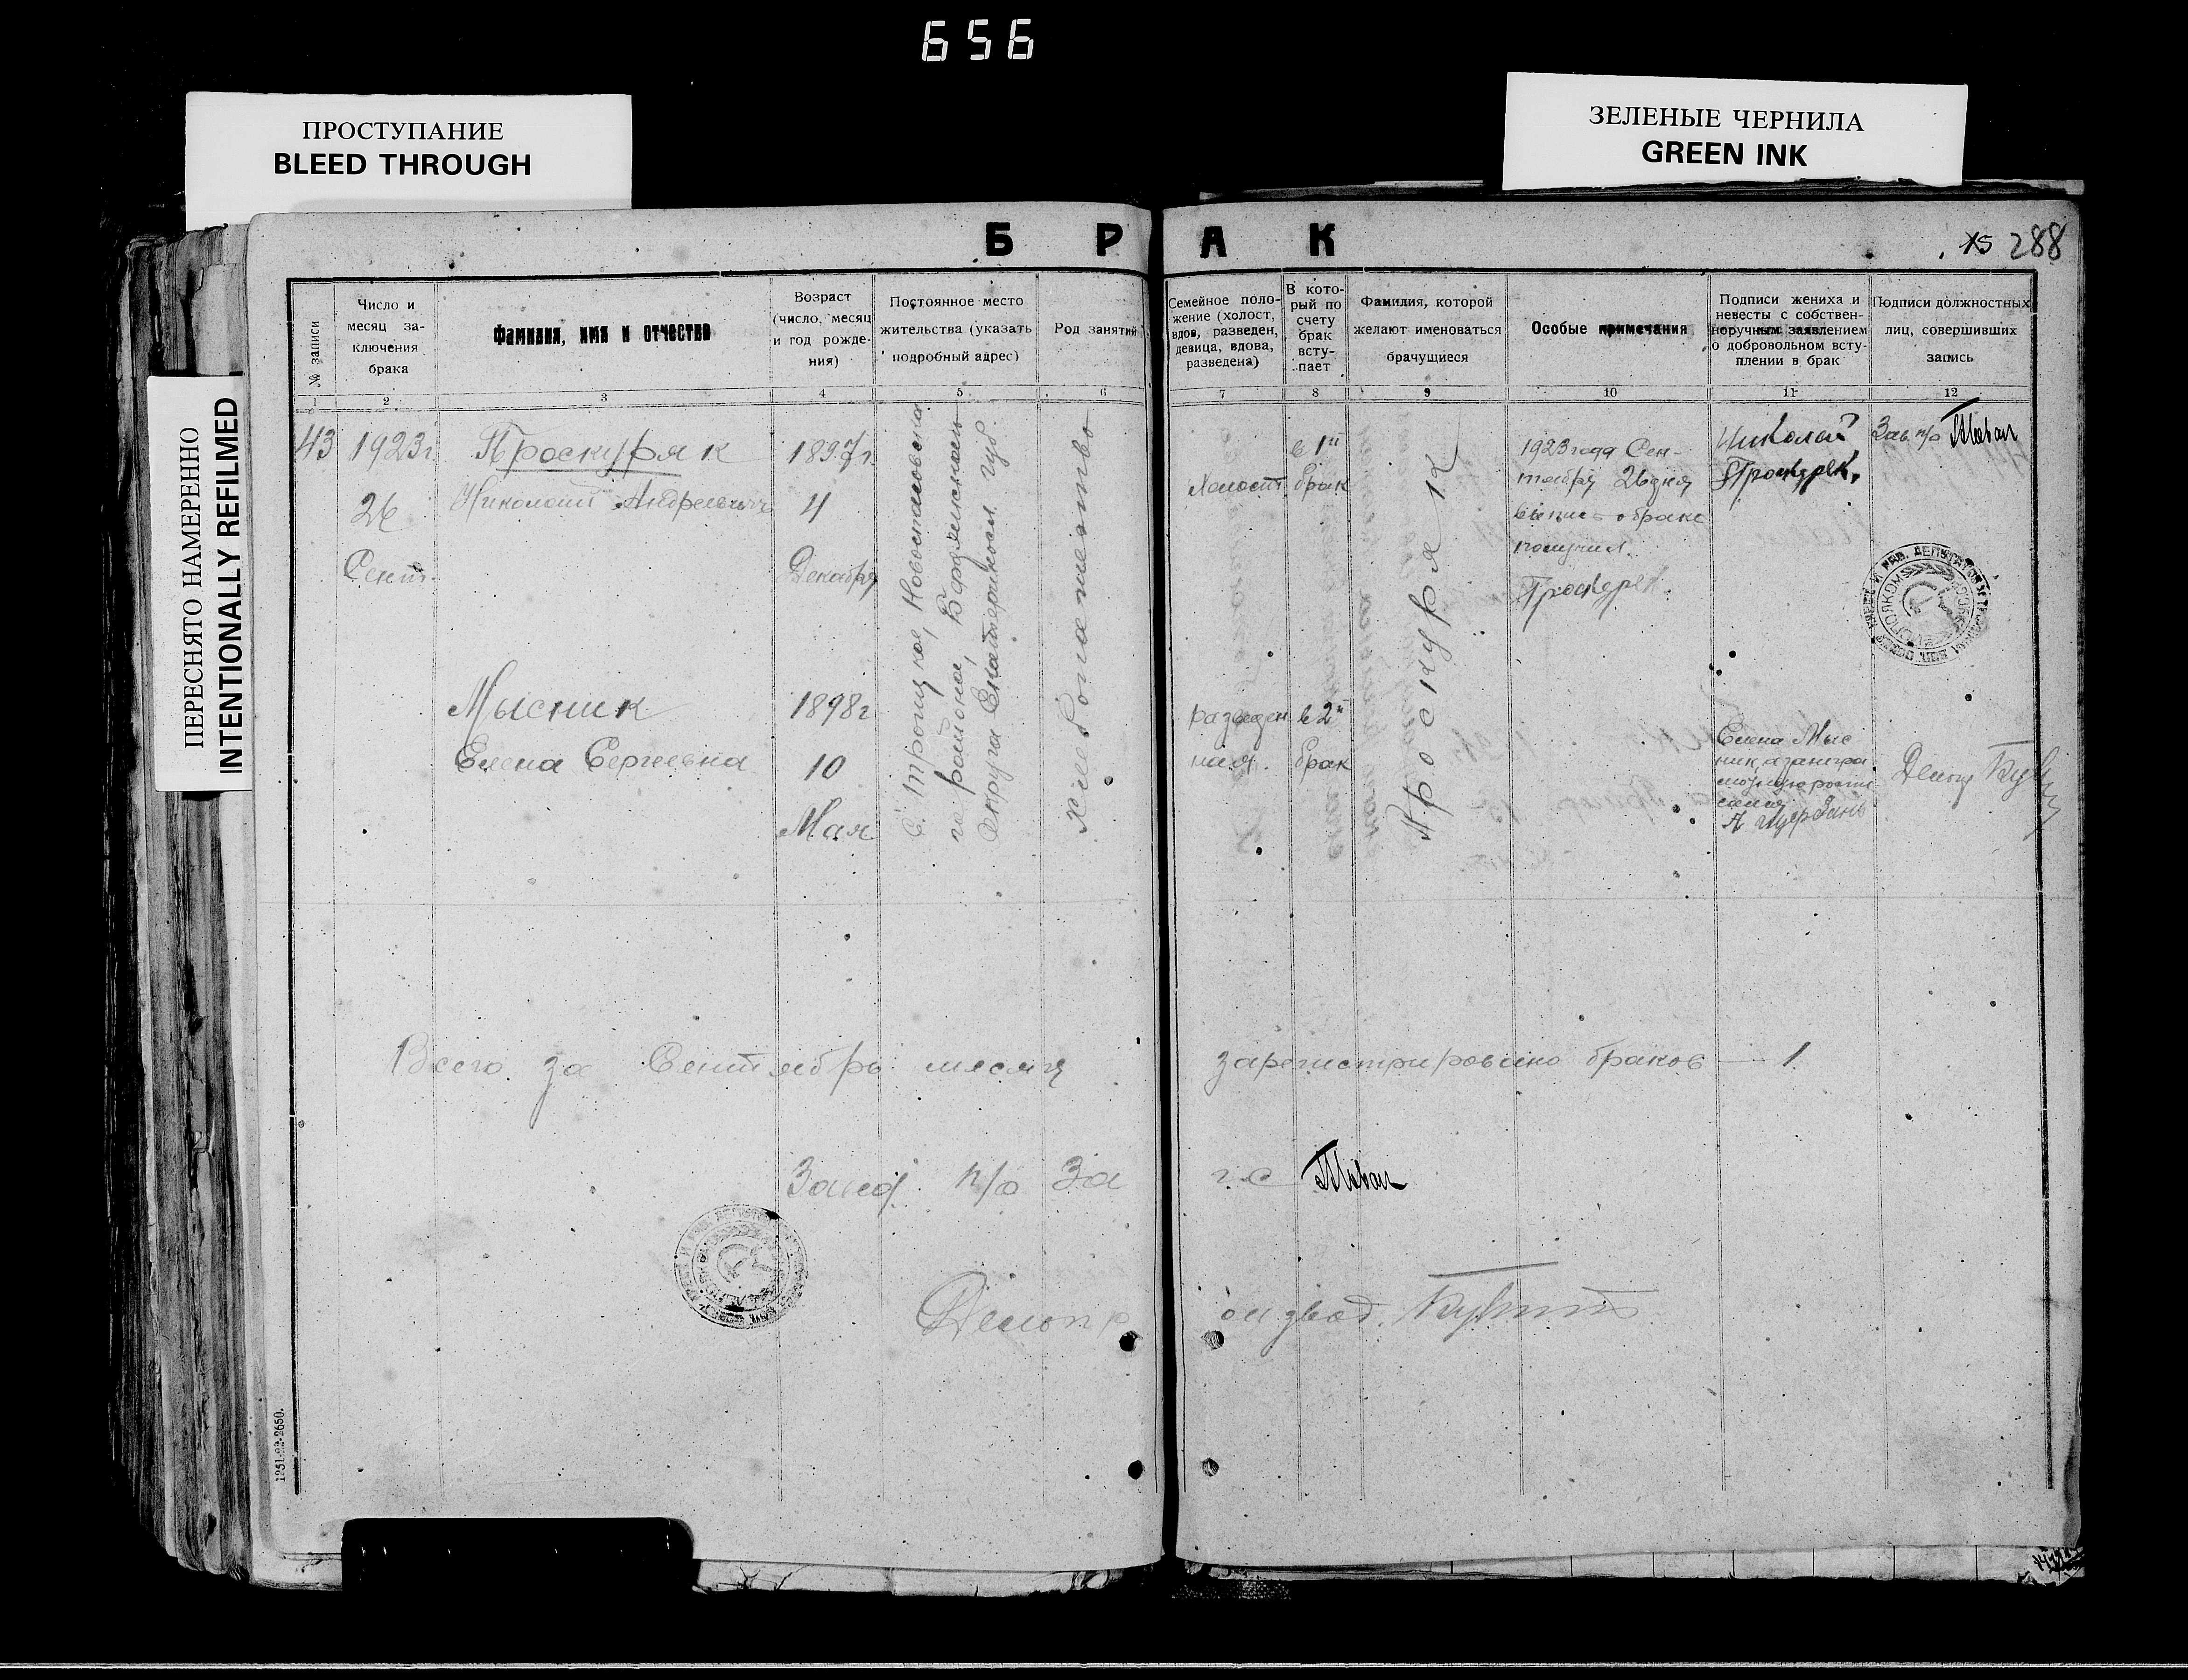 656
ПРОСТУПАНИЕ
BLEED THROUGH
ЗЕЛЕНЫЕ ЧЕРНИЛА
GREEN INK
ПЕРЕСНЯТО НАМЕРЕННО
INTENTIONALLY REFILMED
БРАК
15 288
№ записи
Число и
месяц за-
ключения
брака
Фамилия, имя и отчество
Возраст
(число, месяц
и год рожде-
ния)
Постоянное место
жительства (указать
подробный адрес)
Род занятий
Семейное поло-
жение (холост,
вдов, разведен,
девица, вдова,
разведена)
В кото-
рый по
счету
брак
всту-
пает
Фамилия, которой
желают именоваться
брачущиеся
Особые примечания
Подписи жениха и
невесты с собствен-
норучным заявлением
о добровольном всту-
плении в брак
Подписи должностных
лиц, совершивших
запись
2 3 4 5 6 7 8 9 10 11 12
43
1923г
26
Сент.
Проскуряк
Николай Андреевич
1897г
4
Декабря
Мысник
Елена Сергеевна
1898г
10
Мая
С. Троицкое, Новоспасовска
го района, Бердянского
Округа Екатериносл. губ.
Хлебопашество
Холост
в 1й
брак
разведен
ная.
в 2й
брак
Проскуряк
1923 года Сен-
тября 26 дня
выпись о браке
получил.
Николай
Елена Мыс
ник, а за негра
мотную роспи
Зав. п/о
Всего за Сентябрь месяц зарегистрировано браков — 1
Завед п/о За г с
Делопроизвод.
1251-22-2650.